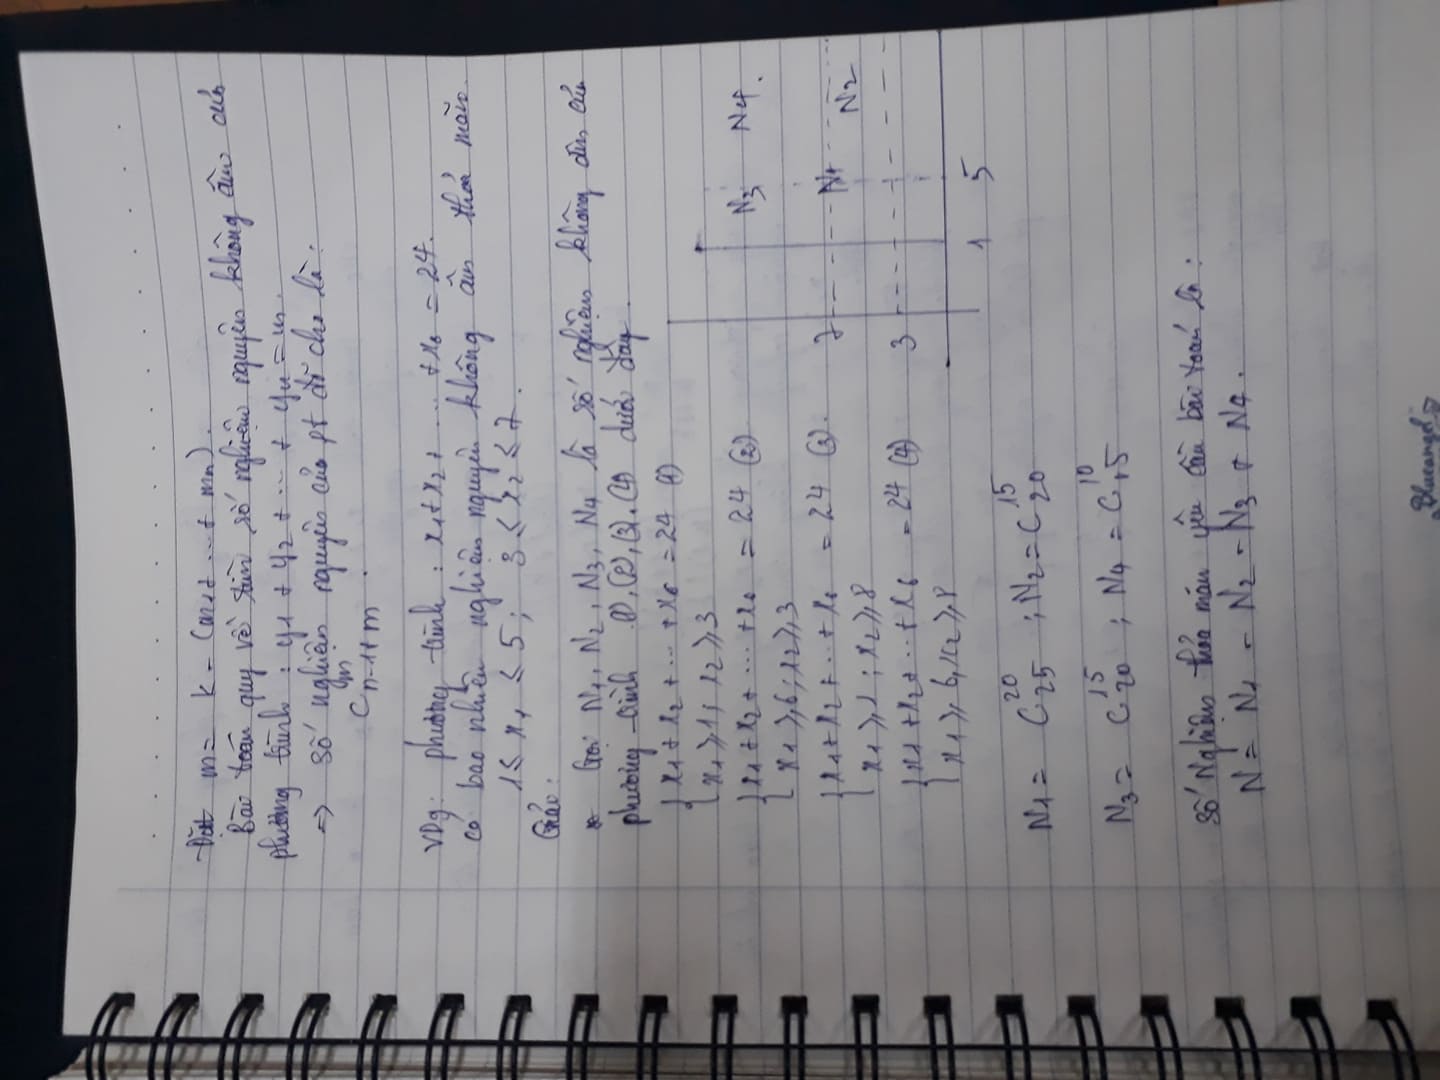 - Đặt m = k - (m1 + ... + mn).
Bài toán quy về tìm số nghiệm nguyên không âm của
phương trình: y1 + y2 + ... + yn = m.
=> số nghiệm nguyên của pt đã cho là:
C^m_{n-1+m}.
VDg: phương trình: x1 + x2 + .... + x6 = 24.
có bao nhiêu nghiệm nguyên không âm thoả mãn.
1 ≤ x1 ≤ 5; 3 ≤ x2 ≤ 7.
Giải:
* Gọi N1, N2, N3, N4 là số nghiệm không âm của
phương trình (1), (2), (3), (4) dưới đây.
{ x1 + x2 + ... + x6 = 24 (1)
x1 ≥ 1; x2 ≥ 3
{ x1 + x2 + ... + x6 = 24 (2)
x1 ≥ 6; x2 ≥ 3
{ x1 + x2 + ... + x6 = 24 (3).
x1 ≥ 1; x2 ≥ 8
{ x1 + x2 + ... + x6 = 24 (4)
x1 ≥ 6, x2 ≥ 8
N3 N4.
7 N1 N2
3
1 5
N1 = C^20_25; N2 = C^15_20
N3 = C^15_20; N4 = C^10_15
Số nghiệm thoả mãn yêu cầu bài toán là:
N = N1 - N2 - N3 + N4.